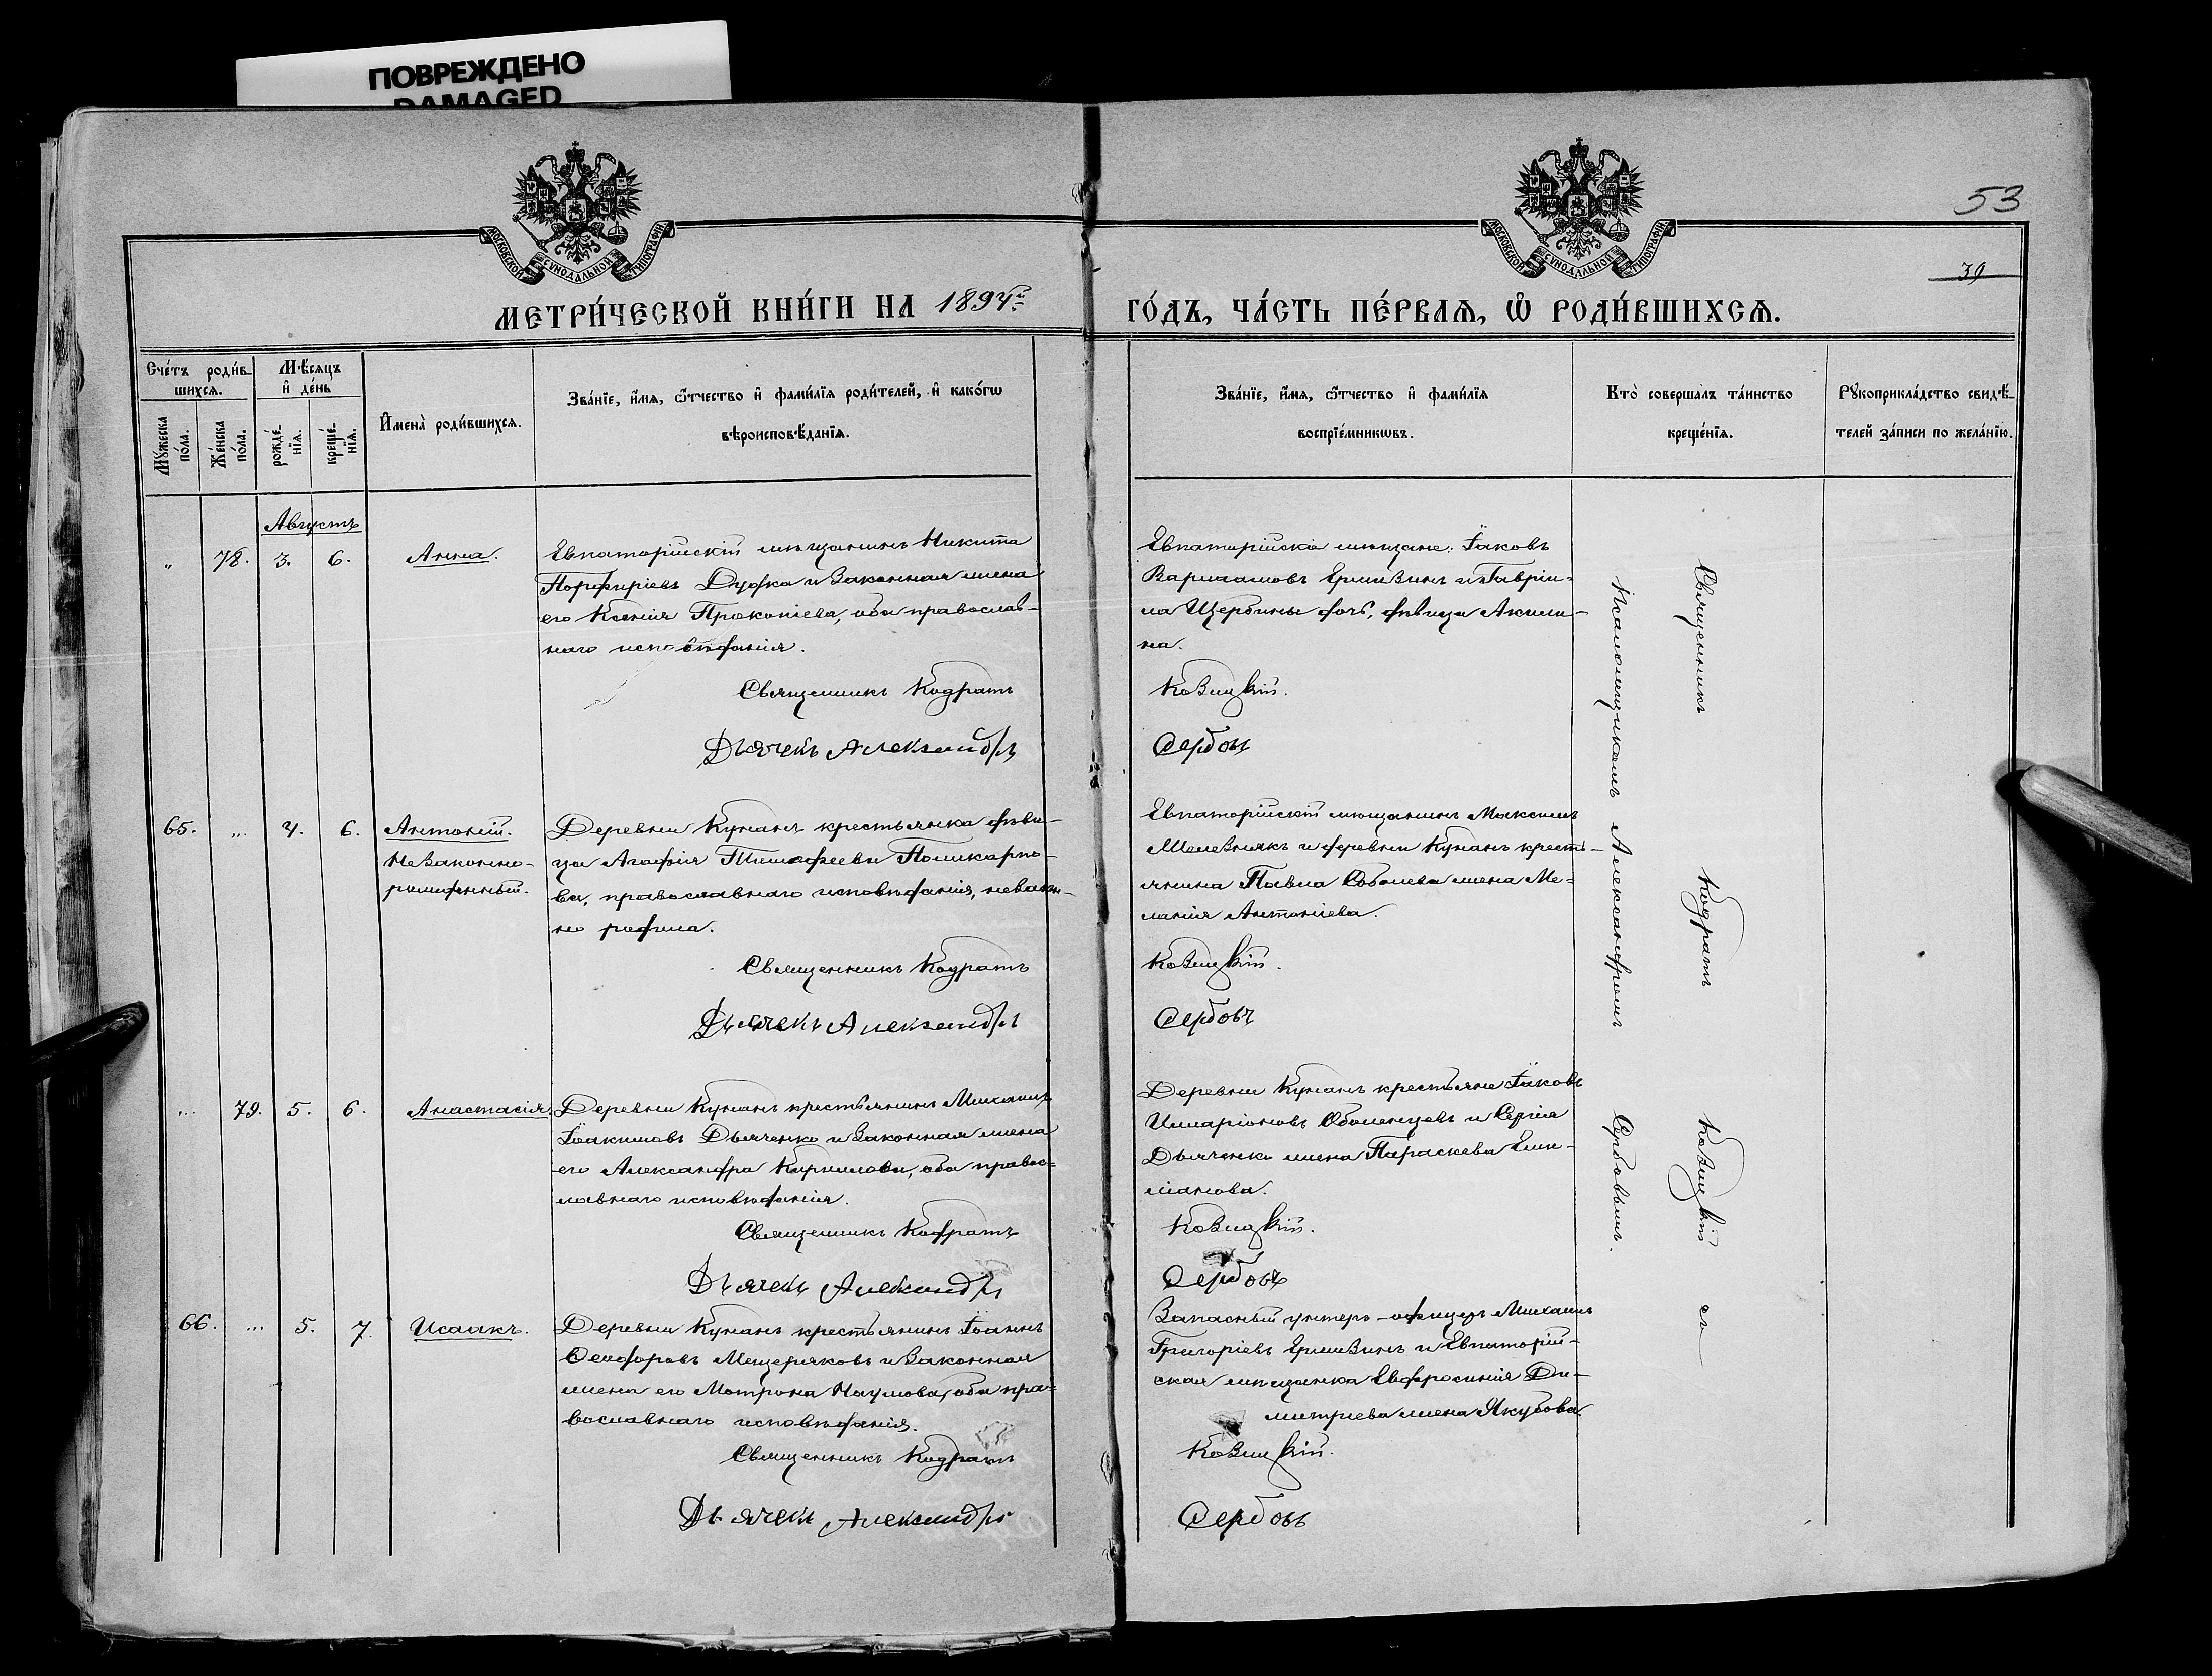 ПОВРЕЖДЕНО
DAMAGED
МОСКОВСКОЙ СѴНОДАЛЬНОЙ ТИПОГРАФІИ
МОСКОВСКОЙ СѴНОДАЛЬНОЙ ТИПОГРАФІИ
53
39
МЕТРИ́ЧЕСКОЙ КНИ́ГИ НА 1894й
ГО́ДЪ, ЧА́СТЬ ПЕ́РВАЯ, Ѽ РОДИ́ВШИХСЯ.
Сче́тъ роди́в-
шихся.
Мꙋ́жеска по́ла.
Же́нска по́ла.
Мѣ́сяцъ и́ де́нь
рожде́-нїя.
креще́-нїя.
И҆мена̀ роди́вшихся.
Зва́нїе, и҆́мя, ѻ҆́тчество и҆ фами́лїя роди́телей, и҆ како́гѡ
вѣроисповѣ́данїя.
Зва́нїе, и҆́мя, ѻ҆́тчество и҆ фами́лїя
воспрїе́мникѡвъ.
Кто̀ соверша́лъ та́инство
креще́нїя.
Рꙋкоприкла́дство свидѣ́-
телей за́писи по жела́нїю.
Августъ
„ 78. 3. 6. Анна.
Евпаторійскій мѣщанинъ Никита
Порфиріевъ Дудка и законная жена
его Ксенія Прокопіева, оба православ-
наго исповѣданія.
Священникъ Кодратъ
Дьячекъ Александръ
Евпаторійскіе мѣщане: Іаковъ
Варлаамовъ Ермизинъ и Гавріи-
ла Щербины дочь, дѣвица Акили-
на.
Козицкій.
Сербовъ
65. „ 4. 6. Антоній.
Незаконно-
рожденный.
Деревни Кунанъ крестьянка дѣви-
ца Агафія Тимофеева Поликарпо-
ва, православнаго исповѣданія, незакон-
но родила.
Священникъ Кодратъ
Дьячекъ Александръ
Евпаторійскій мѣщанинъ Максимъ
Мелезнякъ и деревни Кунанъ кресть-
янина Павла Соболева жена Ме-
ланія Антоніева.
Козицкій.
Сербовъ
„ 79. 5. 6. Анастасія.
Деревни Кунанъ крестьянинъ Михаилъ
Іоакимовъ Дьяченко и законная жена
его Александра Кириллова, оба правос-
лавнаго исповѣданія.
Священникъ Кодратъ
Дьячекъ Александръ
Деревни Кунанъ крестьяне Іаковъ
Илларіоновъ Оболенцевъ и Сергія
Дьяченко жена Параскева Еми-
ліанова.
Козицкій.
Сербовъ
66. „ 5. 7. Исаакъ.
Деревни Кунанъ крестьянинъ Іоаннъ
Ѳеодоровъ Мещеряковъ и законная
жена его Матрона Наумова, оба пра-
вославнаго исповѣданія.
Священникъ Кодратъ
Дьячекъ Александръ
Запасный унтеръ-офицеръ Михаилъ
Григоріевъ Ермизинъ и Евпаторій-
ская мѣщанка Евфросинія Ди-
митріева жена Якубова.
Козицкій.
Сербовъ
Священникъ Кодратъ Козицкій съ
Псаломщикомъ Александромъ Сербовымъ.